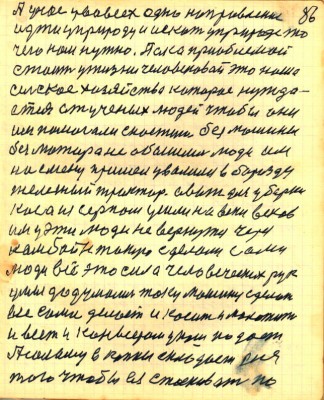 86
А у нас у всех одно направление
идти у природу и искат у природе то
чего нам нужно. Пока проблемой
стоит у жизни человеской это наша
селское хозяйства которое нужда-
ется с ученых людей чтобы они
им помогали скостит без машины
без мотора не обашлис люди им
на смену пришел у валили в борозду
железный трактор. а вот для уборки
коса и серпом ушли на веки веков
им у эти люди не вернутся через
камбайн такую сделали сами
люди всё это сила человеческих рук
умы додумалис таку машину сделат
все сама делает и косит и молотит
и веет и конвеером у кош подает
А солому в копки складает для
того чтобы ея стоковат по